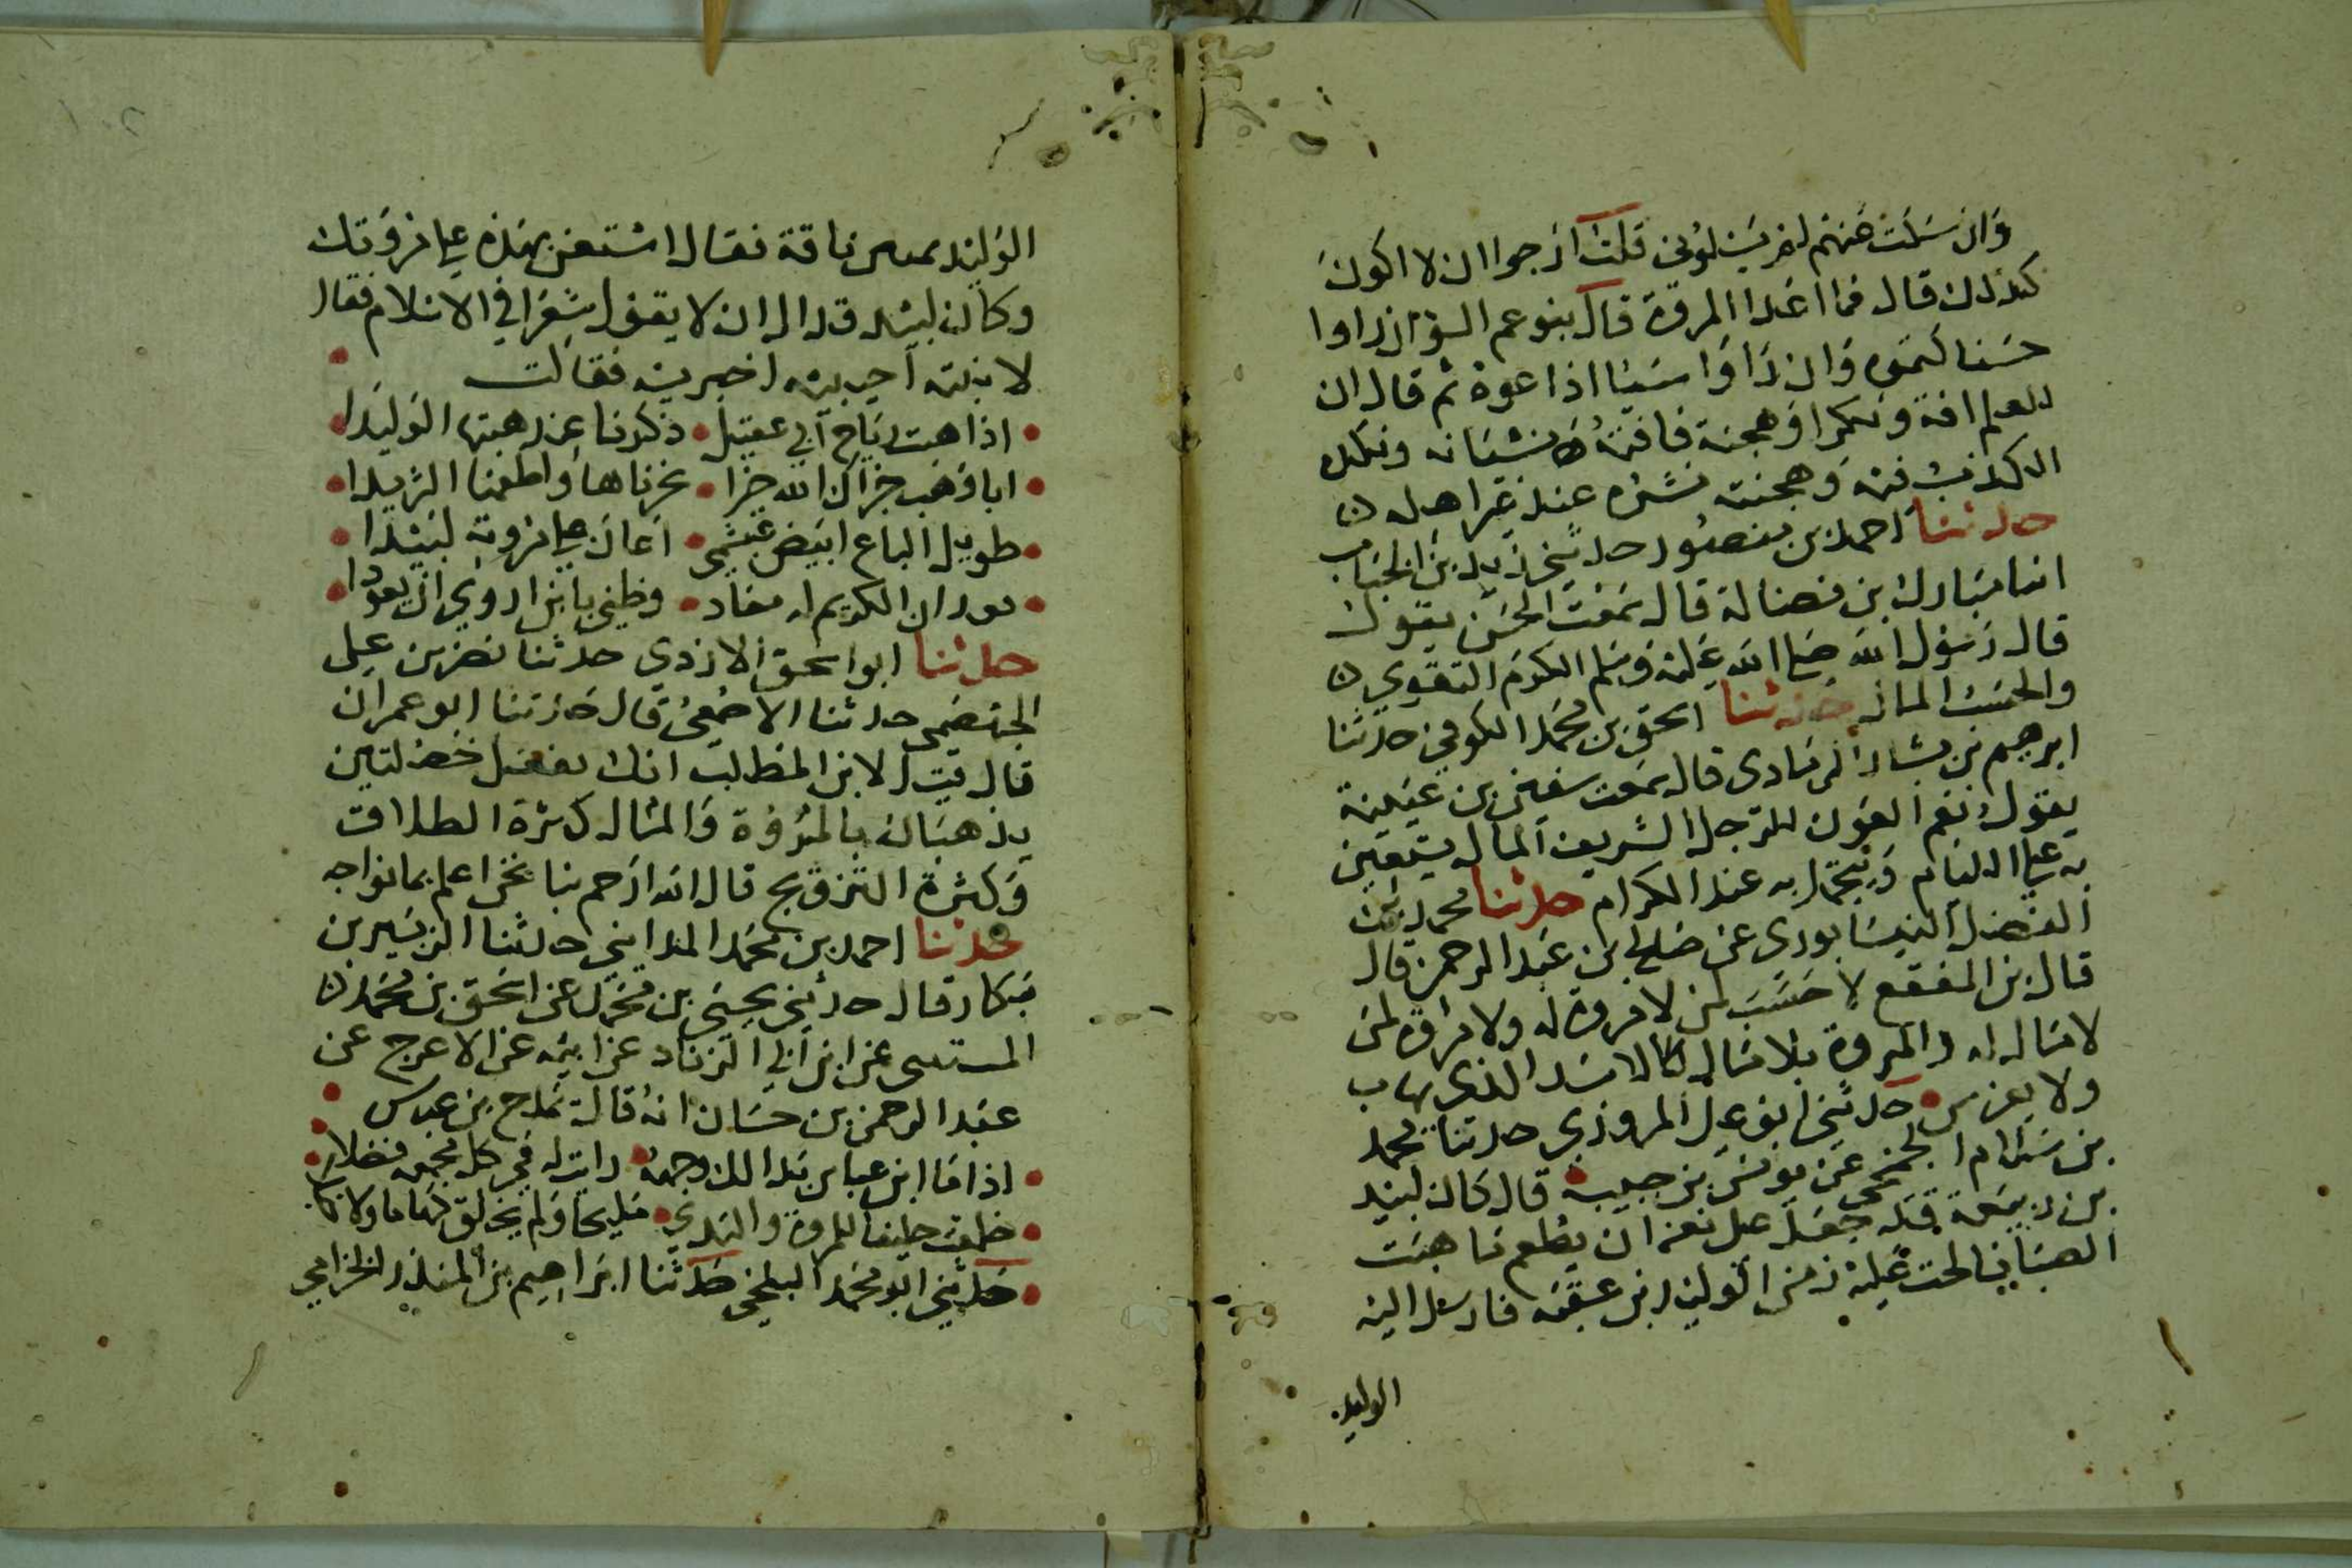 وان سكت عنهم لم يسئلوني قلت ارجوا ان لا اكون
كذلك قال فما اعدا المروة قال بنو عم السوء ان راوا
حسنا كتموه وان راوا سيئا اذاعوه ثم قال ان
للعلم افة ونكدا وهجنة فافته نسيانه ونكده
الكذب فيه وهجنته نشره عند غير اهله
حدثنا احمد بن منصور حدثني زيد بن الحباب
انا مبارك بن فضالة قال سمعت الحسن يقول
قال رسول الله صلى الله عليه وسلم الكرم التقوى
والحسب المال حدثنا اسحق بن محمد الكوفي حدثنا
ابرهيم بن بشار الرمادى قال سمعت سفين بن عيينة
يقول نعم العون للرجل الشريف المال يستعين
به على اللئام ويتجمل به عند الكرام حدثنا محمد بن
الفضل النيسابورى عن صلح بن عبد الرحمن قال
قال بن المقفع لا حسب لمن لا مروة له ولا مروة لمن
لا مال له والمروة بلا مال كالاسد الذى يهاب
ولا يفرس حدثني ابو علي المروزي حدثنا محمد
بن سلام الجمحي عن يونس بن حبيب قال كان لبيد
بن ربيعة قد جعل على نفسه ان يطعم ما هبت
الصبا فالحت عليه زمن الوليد بن عقبة فارسل اليه
الوليد
الوليد بمس ناقة فقال استعن بهذه على مروتك
وكان لبيد قد الى ان لا يقول شعرا في الاسلام فقال
لابنته اجيبيه اخبريه فقالت
اذا هبت رياح ابي عقيل ذكرنا عند هبتها الوليدا
ابا وهب جزاك الله خيرا نحرناها واطعمنا الثريدا
طويل الباع ابيض عبشمي اعان على مروته لبيدا
فعد ان الكريم له معاد وظني يا بن اروى ان يعودا
حدثنا ابو اسحق الازدى حدثنا نصر بن علي
الجهضمي حدثنا الاصمعي قال حدثنا ابو عمران
قال قيل لابن المطلب انك تفعل خصلتين
يذهبان بالمروة والمال كثرة الطلاق
وكثرة التزويج قال الله ارحم بنا نحن اعلم بما نواجه
حدثنا احمد بن محمد المدايني حدثنا الزبير بن
بكار قال حدثني يحيى بن محمد عن اسحق بن محمد
المسيبى عن ابن ابي الزناد عن ابيه عن الاعرج عن
عبد الرحمن بن حسان انه قال يمدح بن عباس
اذا ما ابن عباس بدا لك وجهه رايت له في كل مجمعه فضلا
خلقت حليفا للمروة والندى مليحا ولم يخلق كهاما ولا
حدثني ابو محمد البلخي حدثنا ابراهيم بن المنذر الخزامي